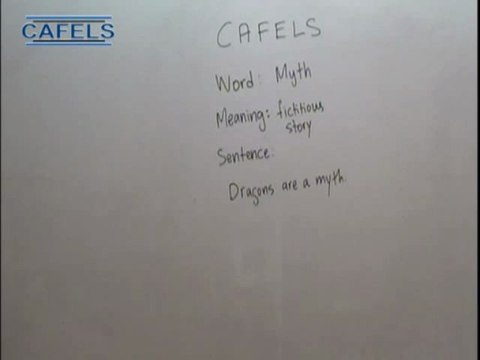 CAFELS
CAFELS
Word: Myth
Meaning: fictitious
story
Sentence:
Dragons are a myth.